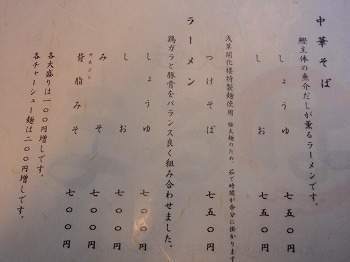 中華そば
鰹主体の魚介だしが薫るラーメンです。
しょうゆ 七五〇円
しお 七五〇円
浅草開化楼特製麺使用 極太麺のため、茹で時間が余分に掛かります
つけそば 七五〇円
ラーメン
鶏ガラと豚骨をバランス良く組み合わせました。
しょうゆ 七〇〇円
しお 七〇〇円
みそ 七〇〇円
背脂みそ 七〇〇円
各大盛りは一〇〇円増しです。
各チャーシュー麺は二〇〇円増しです。